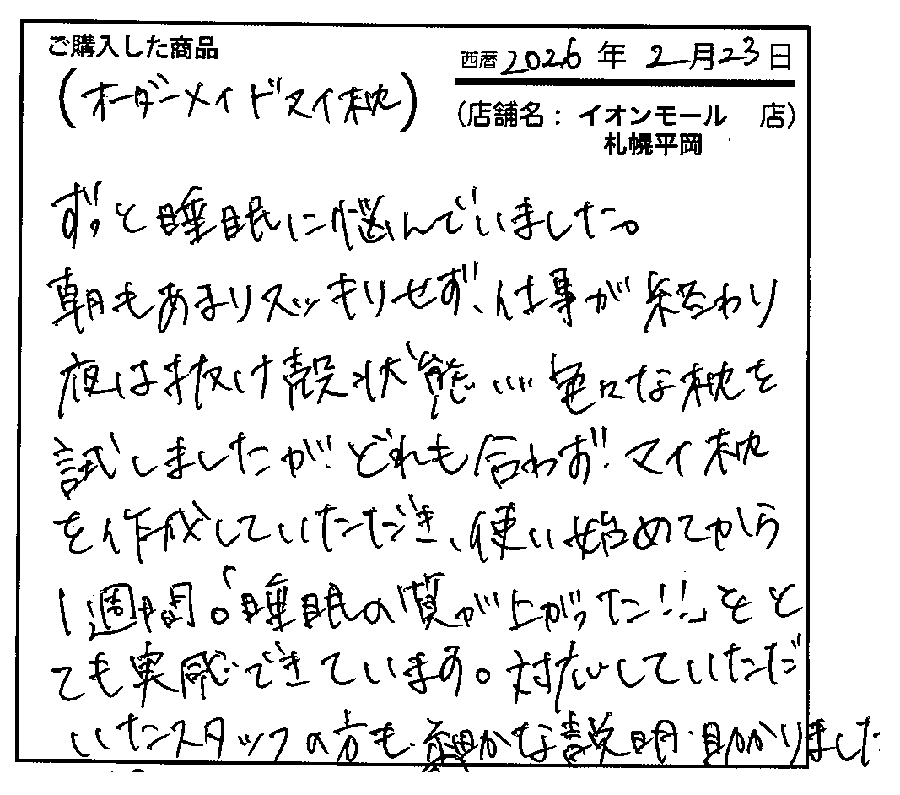 ご購入した商品
西暦 2026 年 2月23日
(オーダーメイドマイ枕)
(店舗名: イオンモール 店)
札幌平岡
ずっと睡眠に悩んでいました。
朝もあまりスッキリせず、仕事が終わり
夜は抜け殻状態… 色々な枕を
試しましたが、どれも合わず、マイ枕
を作成していただき、使い始めてから
1週間。「睡眠の質が上がった!!」とと
ても実感できています。対応していただ
いたスタッフの方も細かな説明助かりました